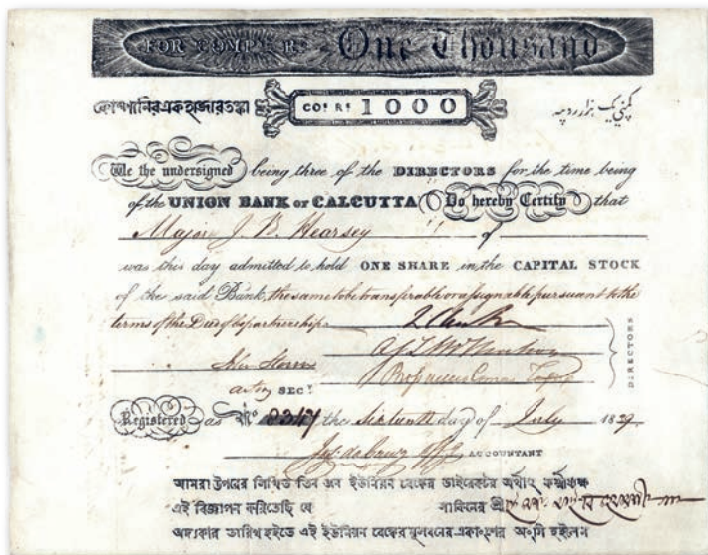 FOR COMPY RS One Thousand
কোম্পানির এক হাজার তঙ্কা COS RS 1000 کمپنی یک هزار روپیه
We the undersigned being three of the DIRECTORS for the time being
of the UNION BANK OF CALCUTTA Do hereby Certify that
Major J. B. Hearsey of
was this day admitted to hold ONE SHARE in the CAPITAL STOCK
of the said Bank, the same to be transferable or assignable pursuant to the
terms of the Deed of Copartnership.
DIRECTORS
acting SECY
Registered as No the Sixteenth day of July 1839
ACCOUNTANT
আমরা উপরের লিখিত তিন জন ইউনিয়ন বেঙ্কের ডাইরেকটর অর্থাৎ কর্ম্মাধ্যক্ষ
এই বিজ্ঞাপন করিতেছি যে সাকিনের শ্রী
অদ্যকার তারিখ হইতে এই ইউনিয়ন বেঙ্কের মূলধনের এক অংশের অংশী হইলেন